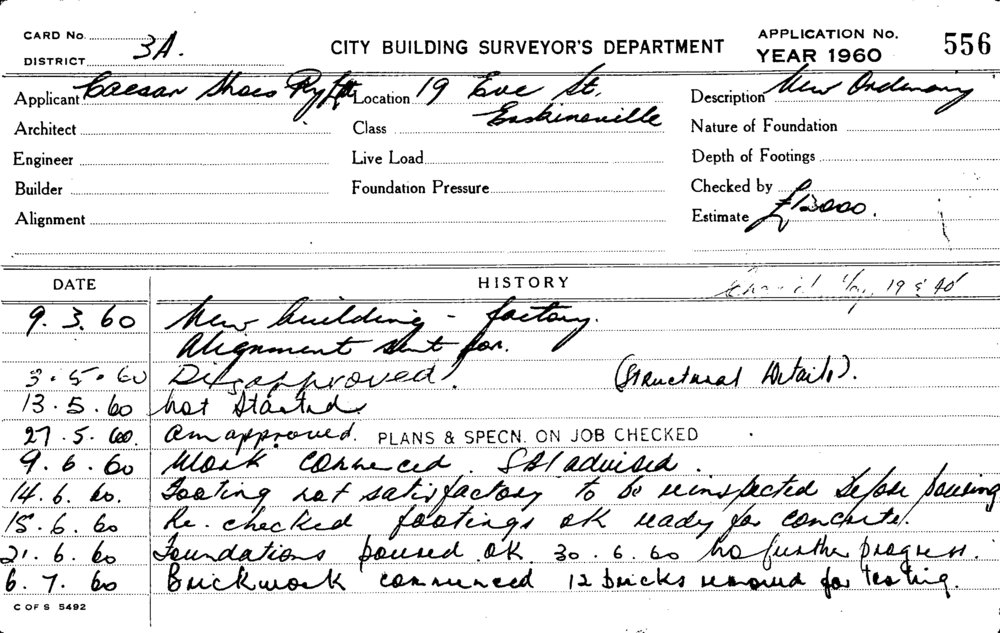 CARD No.
DISTRICT 3A.
CITY BUILDING SURVEYOR'S DEPARTMENT
APPLICATION No. 556
YEAR 1960
Applicant Caesar Shoes Pty Ltd Location 19 Eve St. Description New Ordinary
Erskineville
Architect Class Nature of Foundation
Engineer Live Load Depth of Footings
Builder Foundation Pressure Checked by
Alignment Estimate £12000.
DATE HISTORY
19 & 40
9.3.60 New building - factory.
Alignment sent for.
3.5.60 Disapproved! (Structural Details).
13.5.60 not started
27.5.60. Am approved. PLANS & SPECN. ON JOB CHECKED
9.6.60 Work commenced. advised.
14.6.60. Footing not satisfactory to be reinspected before pouring
15.6.60 Re. checked footings ok ready for concrete.
21.6.60 Foundations poured ok 30.6.60 no further progress.
6.7.60 Brickwork commenced 12 bricks removed for testing.
C OF S 5492